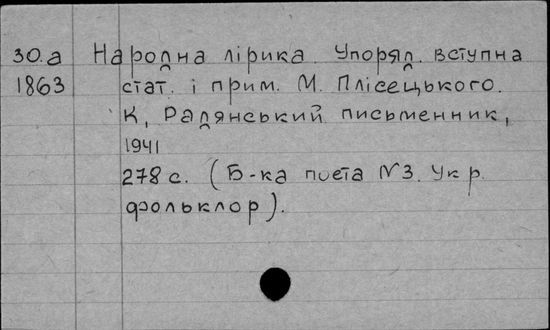 30.а Народна лірика. Упоряд. вступна
1863 стат. і прим. М. Плісецького.
К, Радянський письменник,
1941
278 с. (Б-ка поета №3. Укр.
фольклор).